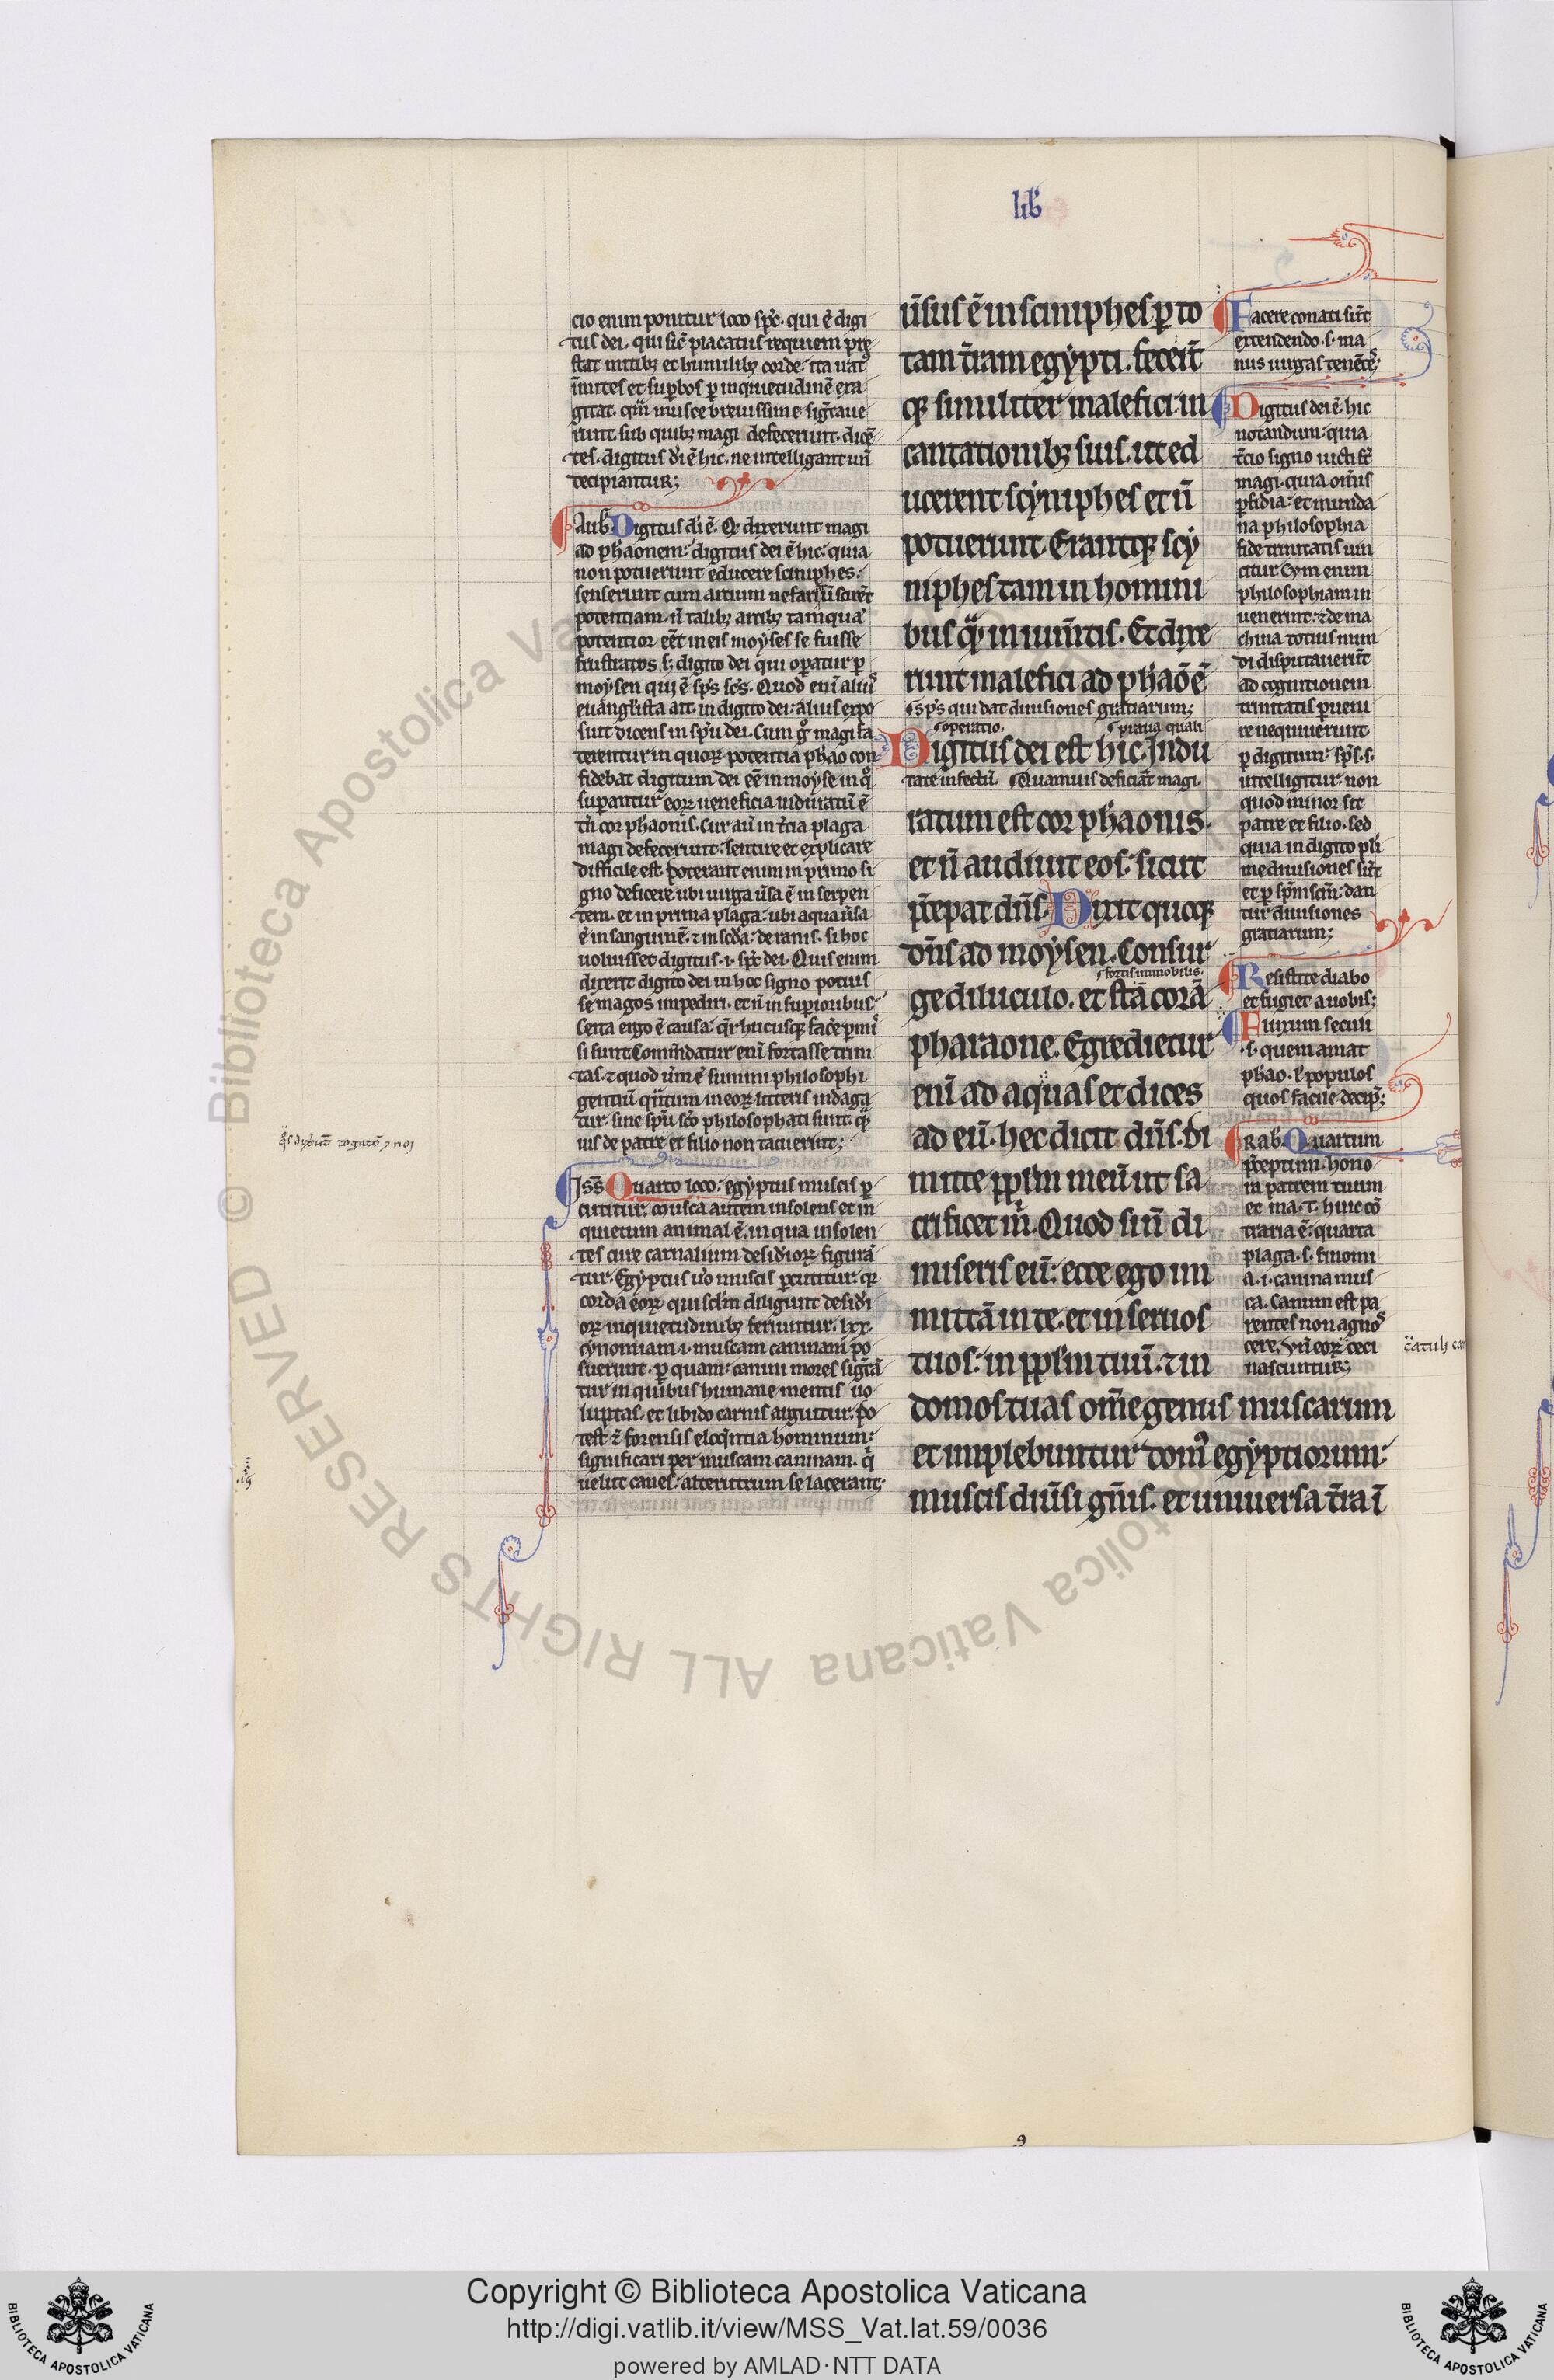 lib̃
cio enim ponitur loco spc̃. qui ẽ digi
tus dei. qui sic̃ placatus requiem prę
stat mitibꝫ et humilibꝫ corde. ita irat᷒
inmites et suꝑbos ꝑ inquietudinẽ exa
gitat. qm̃ musce breuissime sigtaue
runt. sub quibꝫ magi defecerunt. dicẽ
tes. digitus di ẽ hic. ne intelligant uñ
decipiantur;
Aub̃ Digitus di ẽ. Qd dixerunt magi
ad pharaonem: digitus dei ẽ hic: quia
non potuerunt educere sciniphes:
senserunt cum artium nefariũ scirẽt
potentiam. ñ talibꝫ artibꝫ tamqua᷒
potentior eẽt in eis moyses se fuisse
frustratos. sꝫ digito dei qui oꝑatur ꝑ
moysen qui ẽ sp̃s sc̃s. Quod enĩ alius
euangelista ait. in digito dei: alius expo
suit dicens in sp̃u dei. Cum gͦ magi fa
terentur in quoꝝ potentia phãao con
fidebat digitum dei eẽ in moyse in qͦ
supantur eoꝝ ueneficia induratũ ẽ
tñ cor phaonis. Cur aũ in t̃cia plaga
magi defecerunt: sentire et explicare
difficile est. Poterant enim in primo si
gno deficere: ubi uirga ũsa ẽ in serpen
tem. et in prima plaga: ubi aqua ũsa
ẽ in sanguinẽ. ⁊ in scd̃a: de ranis. si hoc
uoluisset digitus .i. spc̃ dei. Quis enim
dixerit digito dei in hoc signo potuis
se magos impediri. et ñ in suꝑioribus:
Certa ergo ẽ causa: qr̃ hucusqꝫ facẽ ꝑmi
si sunt. Com̃datur enĩ fortasse trini
tas. ⁊ quod ũm ẽ summi philosophi
gentiũ quãtum in eoꝝ litteris indaga
tur. sine sp̃u sc̃o philosophati sunt. quã
uis de patre et filio non tacuerint;
Iss̃ Quarto loco: egyptus muscis ꝑ
cutitur. Musca autem insolens et in
quietum animal ẽ. in qua insolen
tes cure carnalium desideꝝ figurã
tur. Egyptus uo muscis ꝑcutitur. qꝛ
corda eoꝝ qui sclm̃ diligunt desidi
oꝝ inquietudinibꝫ feriuntur. lxx.
cynomiam .i. muscam caninam po
suerunt. ꝑ quam: canini mores sigtã
tur in quibus humane mentis uo
luptas. et libido carnis arguitur. Po
test ⁊ forensis eloquentia hominum:
significari per muscam caninam. qͥ
uelut canes: alterutrum se lacerant:
ũsus ẽ in sciniphes ꝑ to
tam t̃ram egypti. fecer̃t
qꝫ similiter malefici in
cantationibꝫ suis. ut ed
ucerent scyniphes et ñ
potuerunt. Erantqꝫ scy
niphes tam in homini
bus quã in iumẽtis. Et dixe
runt malefici ad phãaoẽ
sp̃s qui dat diuisiones gratiarum;
operatio. praua quali
Digitus dei est hic. Indu
tate infectũ. Quamuis deficiãt magi.
ratum est cor phãonis.
et ñ audiuit eos. sicut
p̃cepat dñs. Dixit quoqꝫ
dñs ad moysen. Consur
fortis immobilis.
ge diluculo. et stã corã
pharaone. Egredietur
enĩ ad aquas et dices
ad eũ. hec dicit dñs. Di
mitte ppl̃m meũ ut sa
crificet m̃. Quod si ñ di
miseris eũ: ecce ego im
mittã in te. et in seruos
tuos: in ppl̃m tuũ. ⁊ in
domos tuas om̃e genus muscarum
et implebuntur dom᷒ egyptiorum:
muscis diũsi gñis. et uniuersa t̃ra ĩ
Facere conati sũt
extendendo .s. ma
nus uirgas tenẽtes.
Digitus dei ẽ hic
notandum: quia
t̃cio signo uicti st̃
magi. quia om̃is
ꝑfidia: et munda
na philosophia
fide trinitatis uin
citur. Cum enim
philosophiam in
uenerint: ⁊ de ma
china totius mun
di disputauerũt
ad cognitionem
trinitatis ꝑueni
re nequiuerunt
ꝑ digitum: sp̃s .s.
intelligitur. non
quod minor sit
patre et filio. sed
quia in digito pli
me diuisiones sũt
et ꝑ sp̃m scm̃: dan
tur diuisiones
gratiarum;
Resistite diabo
et fugiet a uobis:
Fluxum seculi
.s. quem amat
phãao. ł populos
quos facile decip̃.
Rab̃ Quartum
p̃ceptum. hono
ra patrem tuum
et ma. t. huic cõ
traria ẽ: quarta
plaga .s. sinomi
a .i. canina mus
ca. Canum est pa
rentes non agnos
cere. Vñ eoꝝ ceci
nascuntur;
catulj